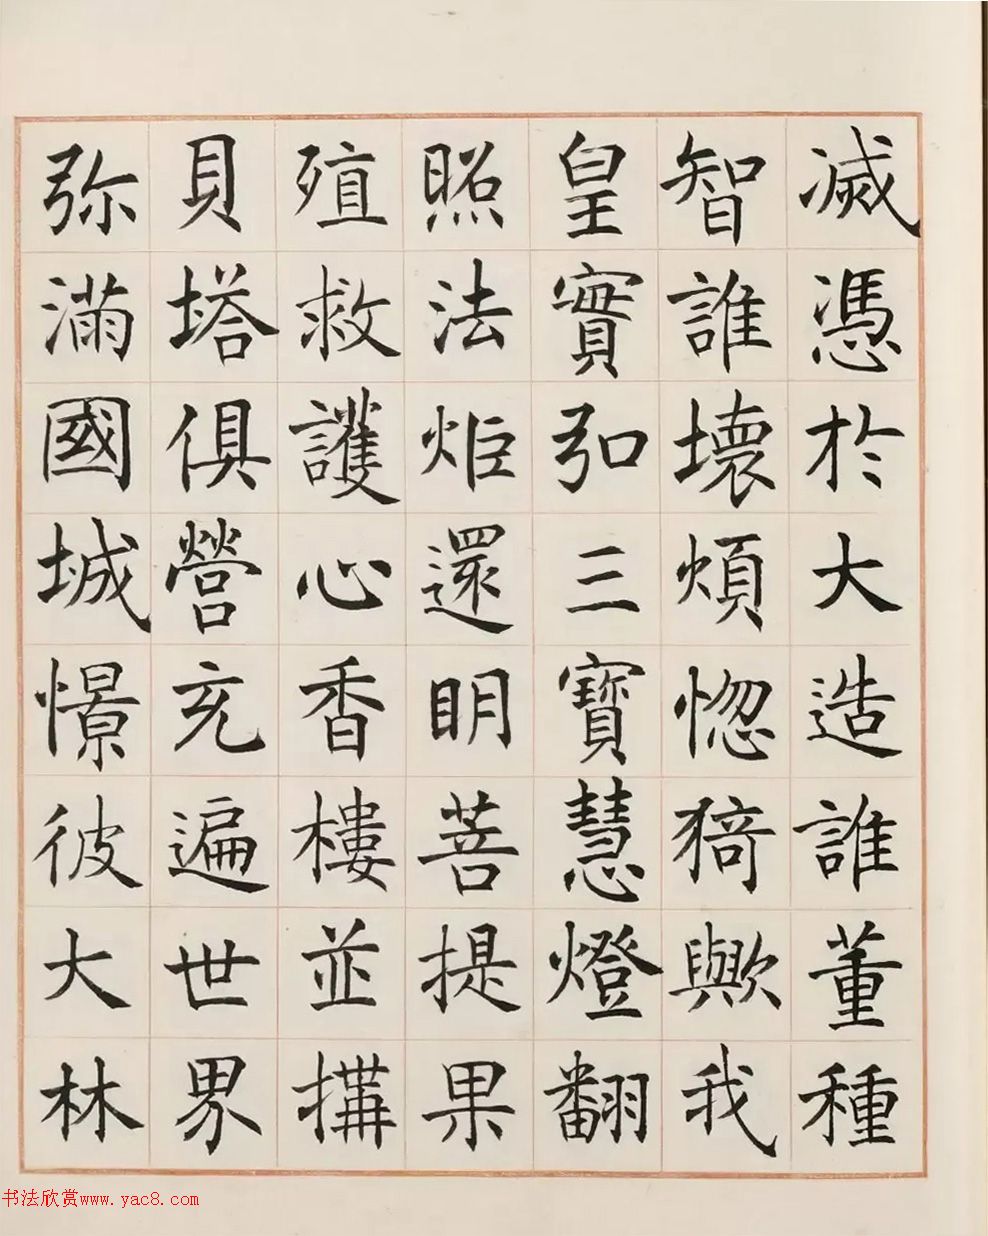 滅憑於大造誰董種
智誰壞煩惚猗歟我
皇實弘三寶慧燈翻
照法炬還明菩提果
殖救護心香樓並搆
貝塔俱營充遍世界
弥滿國城憬彼大林
书法欣赏www.yac8.com